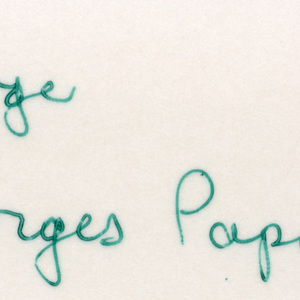 ge
rges Pap